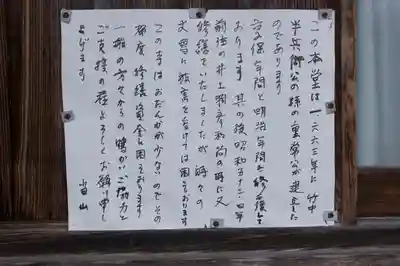 この本堂は一六六三年に竹中
半兵衛公の孫の重常公が建立した
のであります
享保年間と明治年間と修理して
おります 其の後昭和五十三・四年
前住の井上 和尚の時に又
修繕していたしましたが 時々の
災害に被害を受けては困っております
この寺はおだんかが少ないのでその
都度修繕資金に困っております
一般の方々からの暖かいご協力と
ご支援の程よろしくお願い申し
上げます 当山